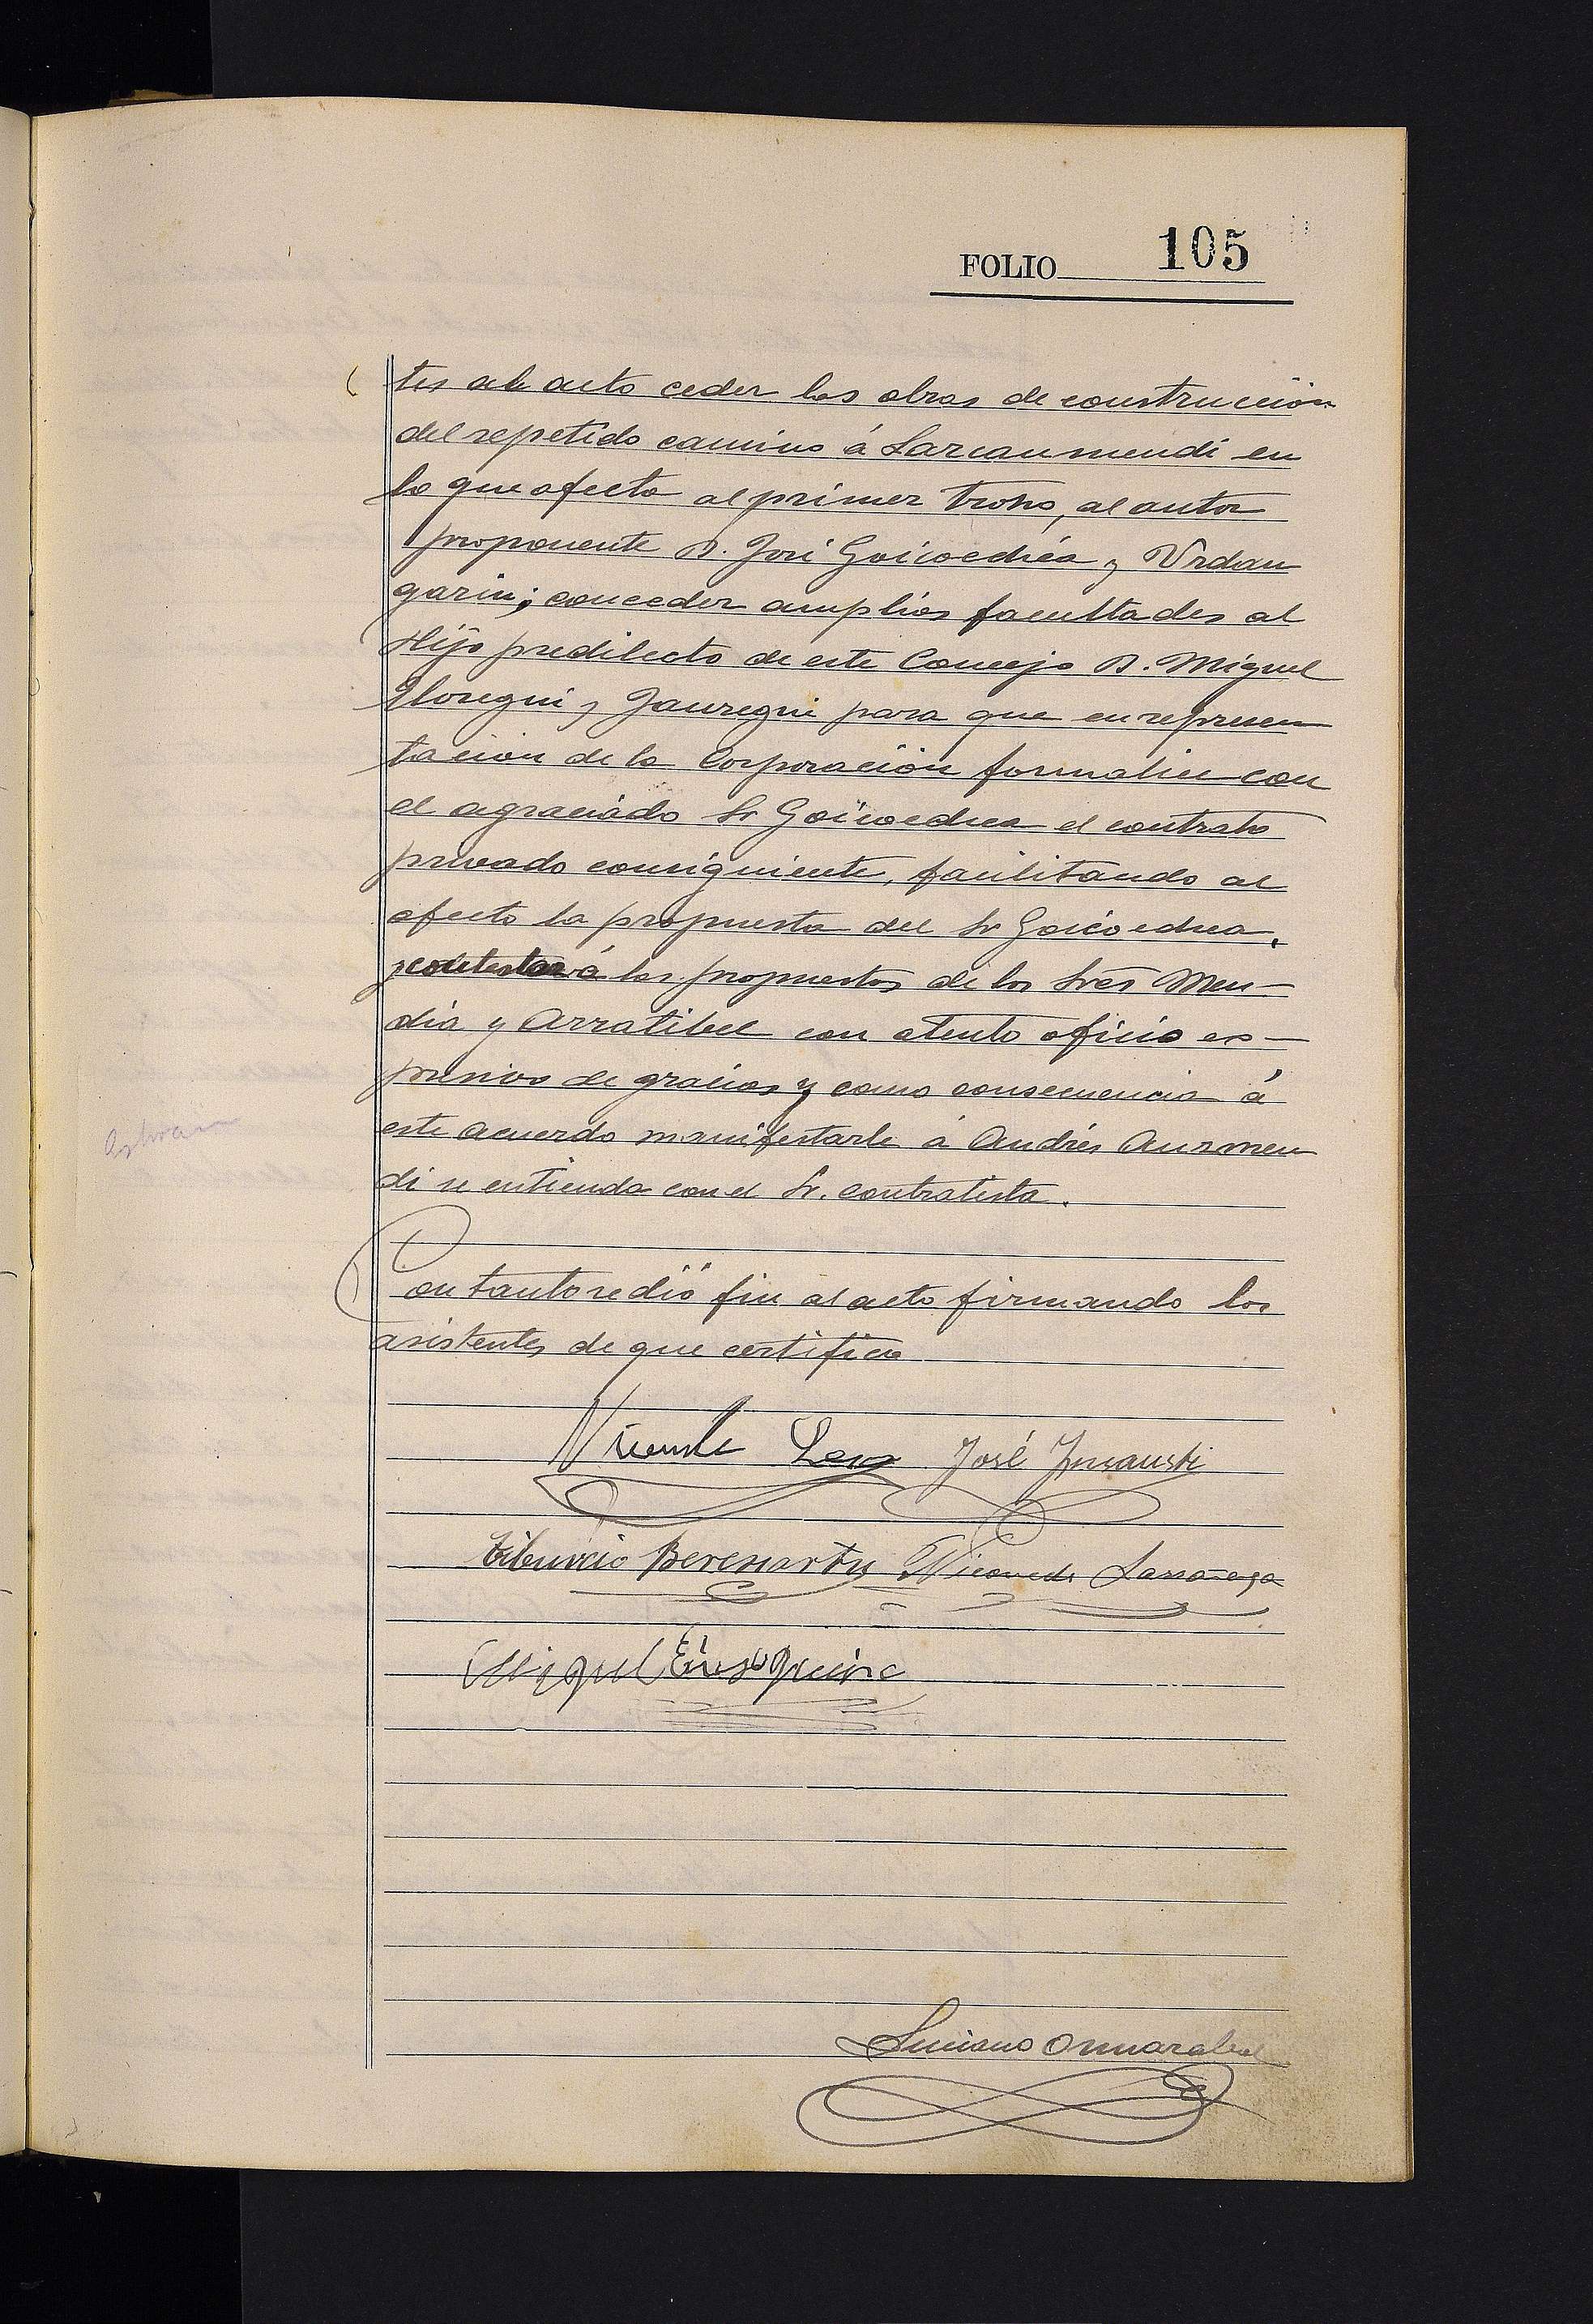 FOLIO 105
tes al acto ceder las obras de construcción
del repetido camino á Larcaumendi en
lo que afecta al primer trozo, al autor
proponente D. José Goicoechéa y Urdan
garin; conceder amplias facultades al
Hijo predilecto de este Concejo D. Miguel
Elosegui y Jauregui para que en represen
tación de la Corporación formalice con
el agraciado Sr Goicoechea el contrato
privado consiguiente, facilitando al
efecto la propuesta del Sr Goicoechea,
y contestar á las propuestas de los Sres Men-
dia y Arratibel con atento oficio ex-
presivo de gracias y como consecuencia á
este acuerdo manifestarle á Andrés Auzmen
di se entienda con el Sr. contratista.
Con tanto se dió fin al acto firmando los
asistentes de que certifico
Vicente José Insausti
Tiburcio Beresiartu Nicomedes Larrañaga
Miguel
Luciano